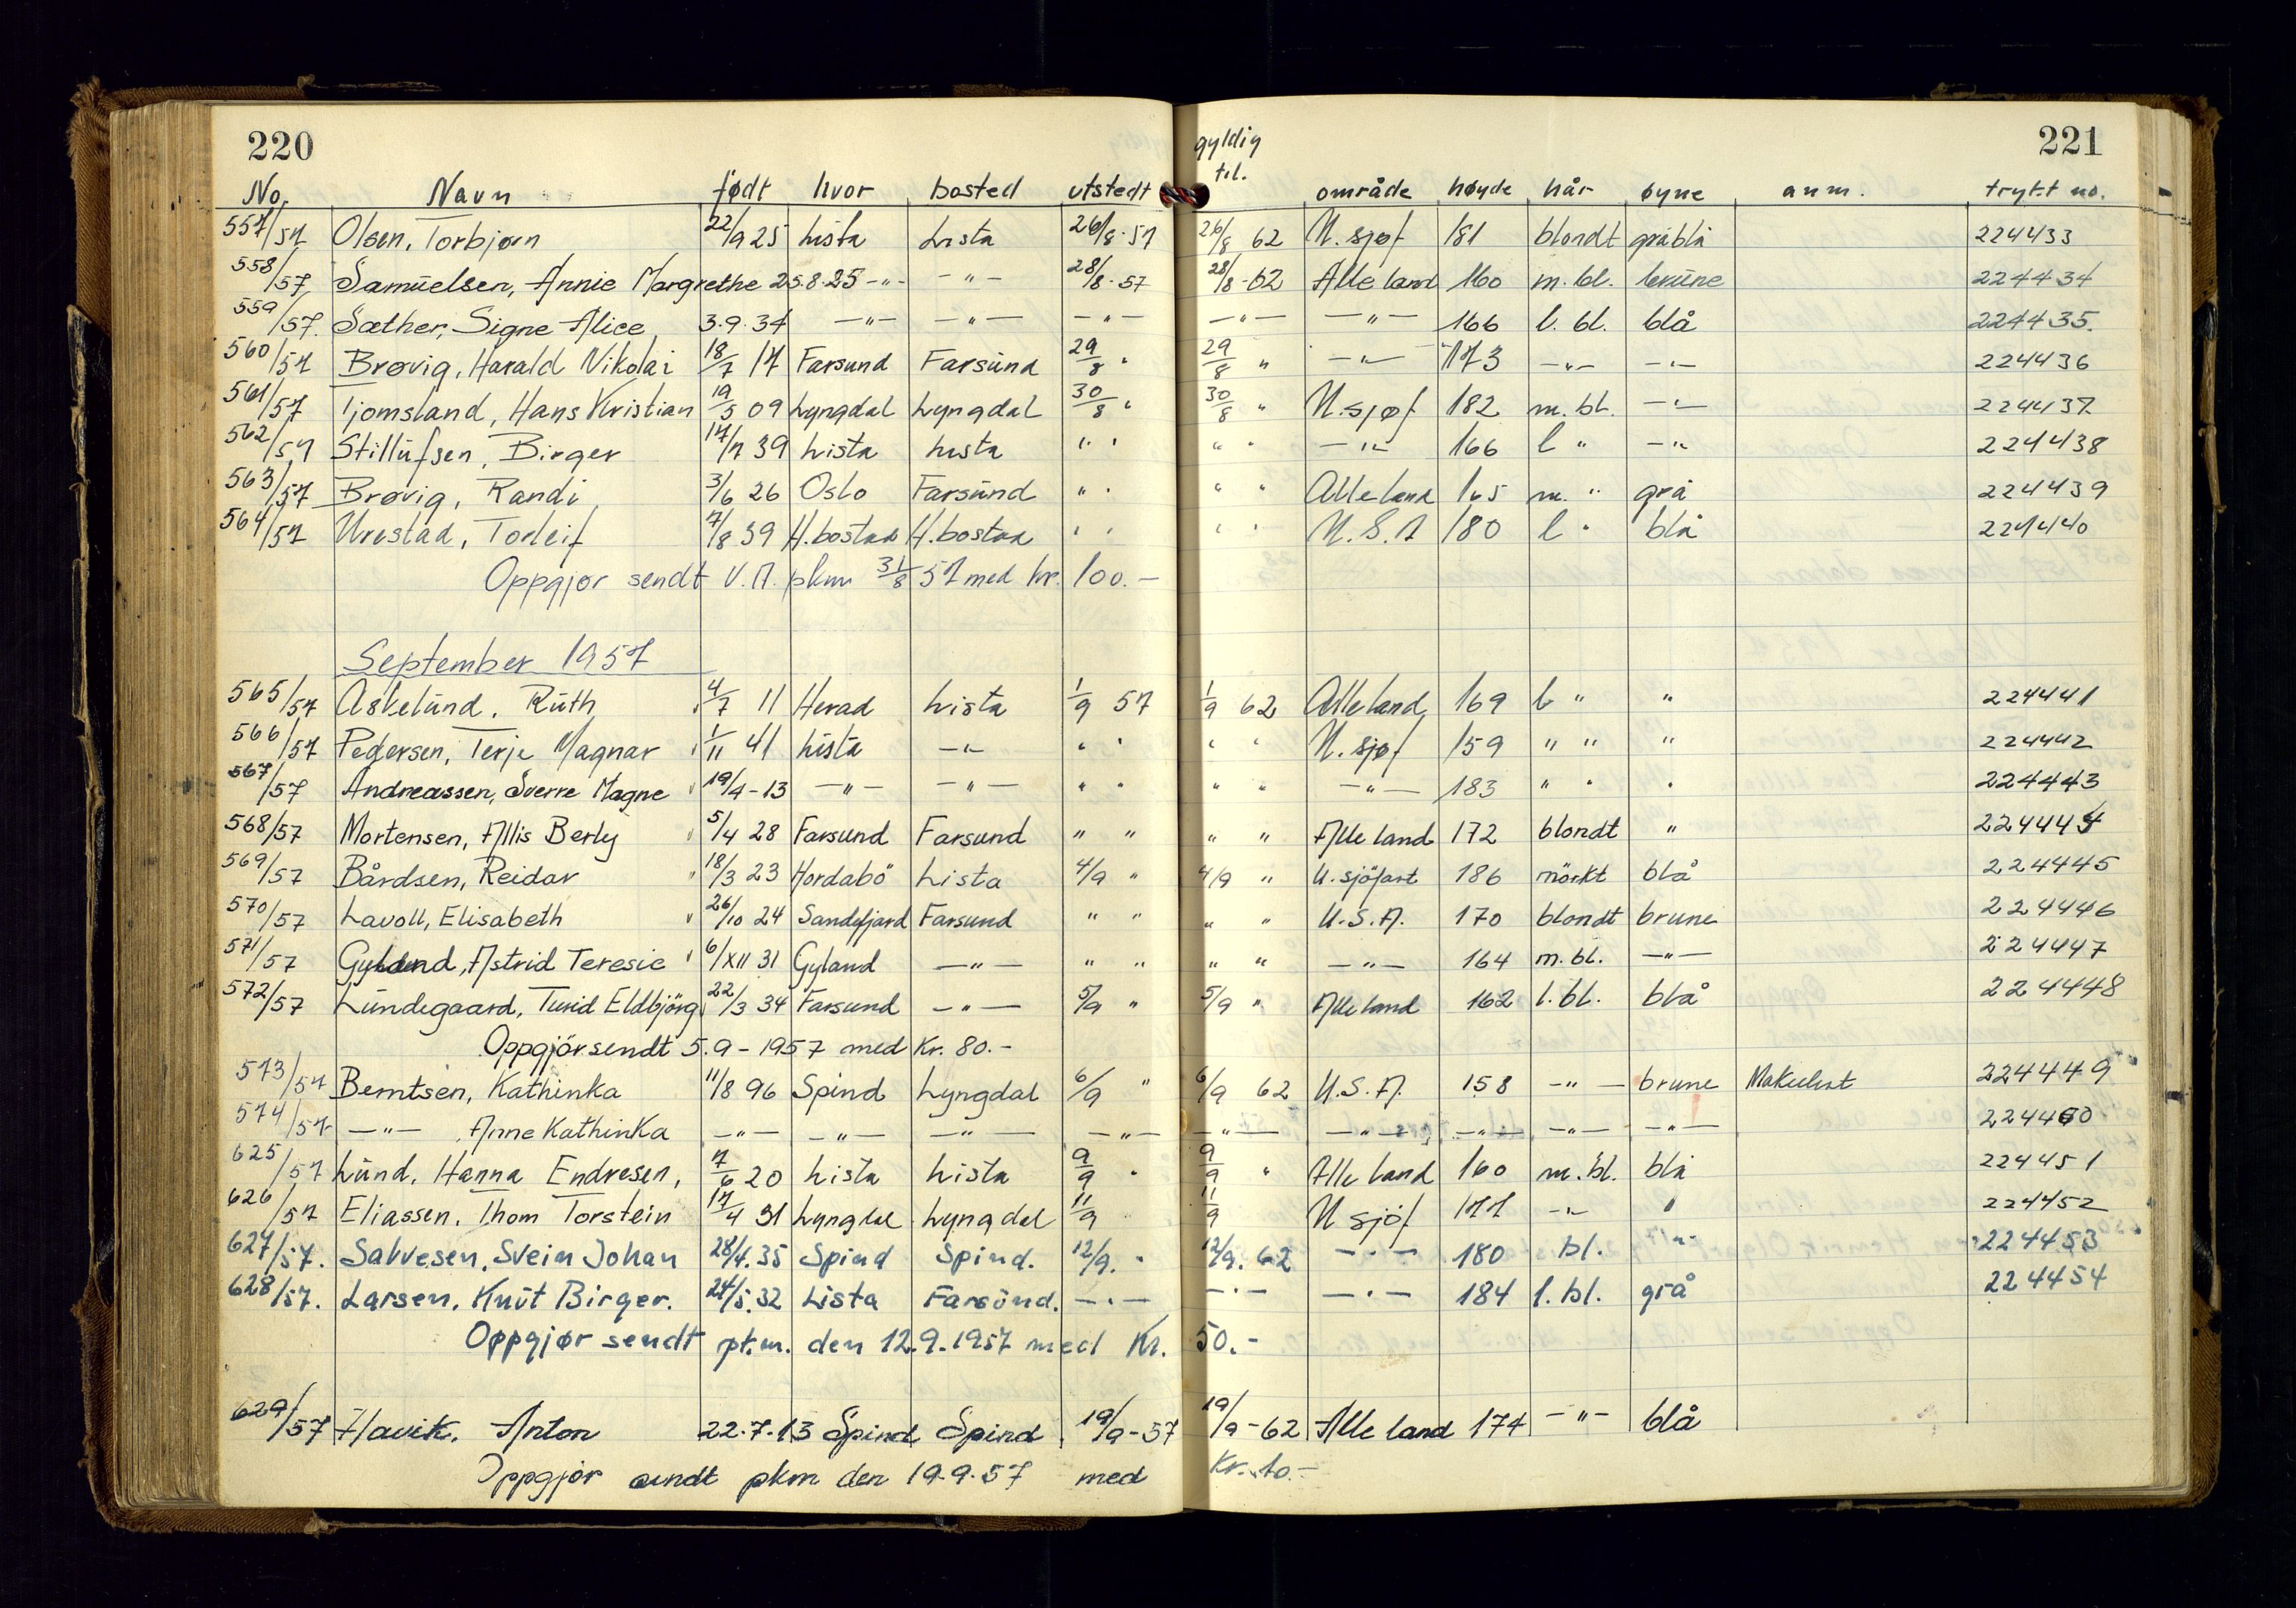 220
gyldig
221
No. Navn født hvor bosted utstedt til. område høyde hår øyne anm. trykt no.
557/57 Olsen, Torbjørn 22/9 25 Lista Lista 26/8-57 26/8 62 U. sjøf 181 blondt gråblå 224433
558/57 Samuelsen, Annie Margrethe 25.8.25 -"- -"- 28/8-57 28/8-62 Alle land 160 m.bl. brune 224434
559/57. Sæther, Signe Alice 3.9.34 -"- -"- -"- -"- -"- 166 l. bl. blå 224435.
560/57 Brøvig, Harald Nikolai 18/7 17 Farsund Farsund 29/8 " 29/8 " -"- 173 -"- -"- 224436
561/57 Tjomsland, Hans Kristian 19/5 09 Lyngdal Lyngdal 30/8 " 30/8 " U.sjøf 182 m.bl. -"- 224437
562/57 Stillufsen, Birger 17/7 39 Lista Lista " " " " -"- 166 l " -"- 224438
563/57 Brøvig, Randi 3/6 26 Oslo Farsund " " " " Alle land 165 m. " grå 224439
564/57 Urestad, Torleif 7/8 39 H.bostad H.bostad " " " " U.S.A 180 l " blå 224440
Oppgjør sendt V.A. pkm 31/8 57 med kr. 100.-
September 1957
565/57 Askelund, Ruth 4/7 11 Herad Lista 1/9 57 1/9 62 Alle land 169 l " " 224441
566/57 Pedersen, Terje Magnar 1/11 41 Lista -"- " " " " U. sjøf 159 " " " 224442
567/57 Andreassen, Sverre Magne 19/4-13 -"- -"- " " " " -"- 183 " " " 224443
568/57 Mortensen, Allis Berly 5/4 28 Farsund Farsund " " " " Alle land 172 blondt " 224444
569/57 Bårdsen, Reidar 18/3 23 Hordabö Lista 4/9 " 4/9 " U. sjöfart 186 mörkt blå 224445
570/57 Lavoll, Elisabeth 26/10 24 Sandefjord Farsund " " " " U.S.A. 170 blondt brune 224446
571/57 Gyland, Astrid Teresie 6/XII 31 Gyland -"- " " " " -"- 164 m.bl. -"- 224447
572/57 Lundegaard, Turid Eldbjörg 22/3 34 Farsund -"- 5/9 " 5/9 " Alle land 162 l.bl. blå 224448
Oppgjör sendt 5.9-1957 med Kr. 80.-
573/57 Berntsen, Kathinka 11/8 96 Spind Lyngdal 6/9 " 6/9 62 U.S.A. 158 -"- brune Makulert 224449
574/57 -"- Anne Kathinka -"- -"- -"- -"- -"- -"- -"- -"- -"- 224460
625/57 Lund, Hanna Endresen, 7/6 20 Lista Lista 9/9 " 9/9 " Alle land 160 m.bl. blå 224451
626/57 Eliassen, Thom Torstein 17/4 31 Lyngdal Lyngdal 11/9 11/9 U sjöf 177 -"- " 224452
627/57. Salvesen, Svein Johan 28/4.35 Spind Spind. 12/9. " 12/9. 62 -"- 180 bl. -"- 224453
628/57. Larsen, Knut Birger. 24/5.32 Lista Farsund. -"- -"- -"- 184 l.bl. grå 224454
Oppgjør sendt pt.m. den 12.9.1957 med Kr. 50.-
629/57 Havik, Anton 22.7.13 Spind Spind 19/9-57 19/9-62 Alle land 174 -"- blå
Oppgjør sendt pkm den 19.9.57 med Kr. 10.-